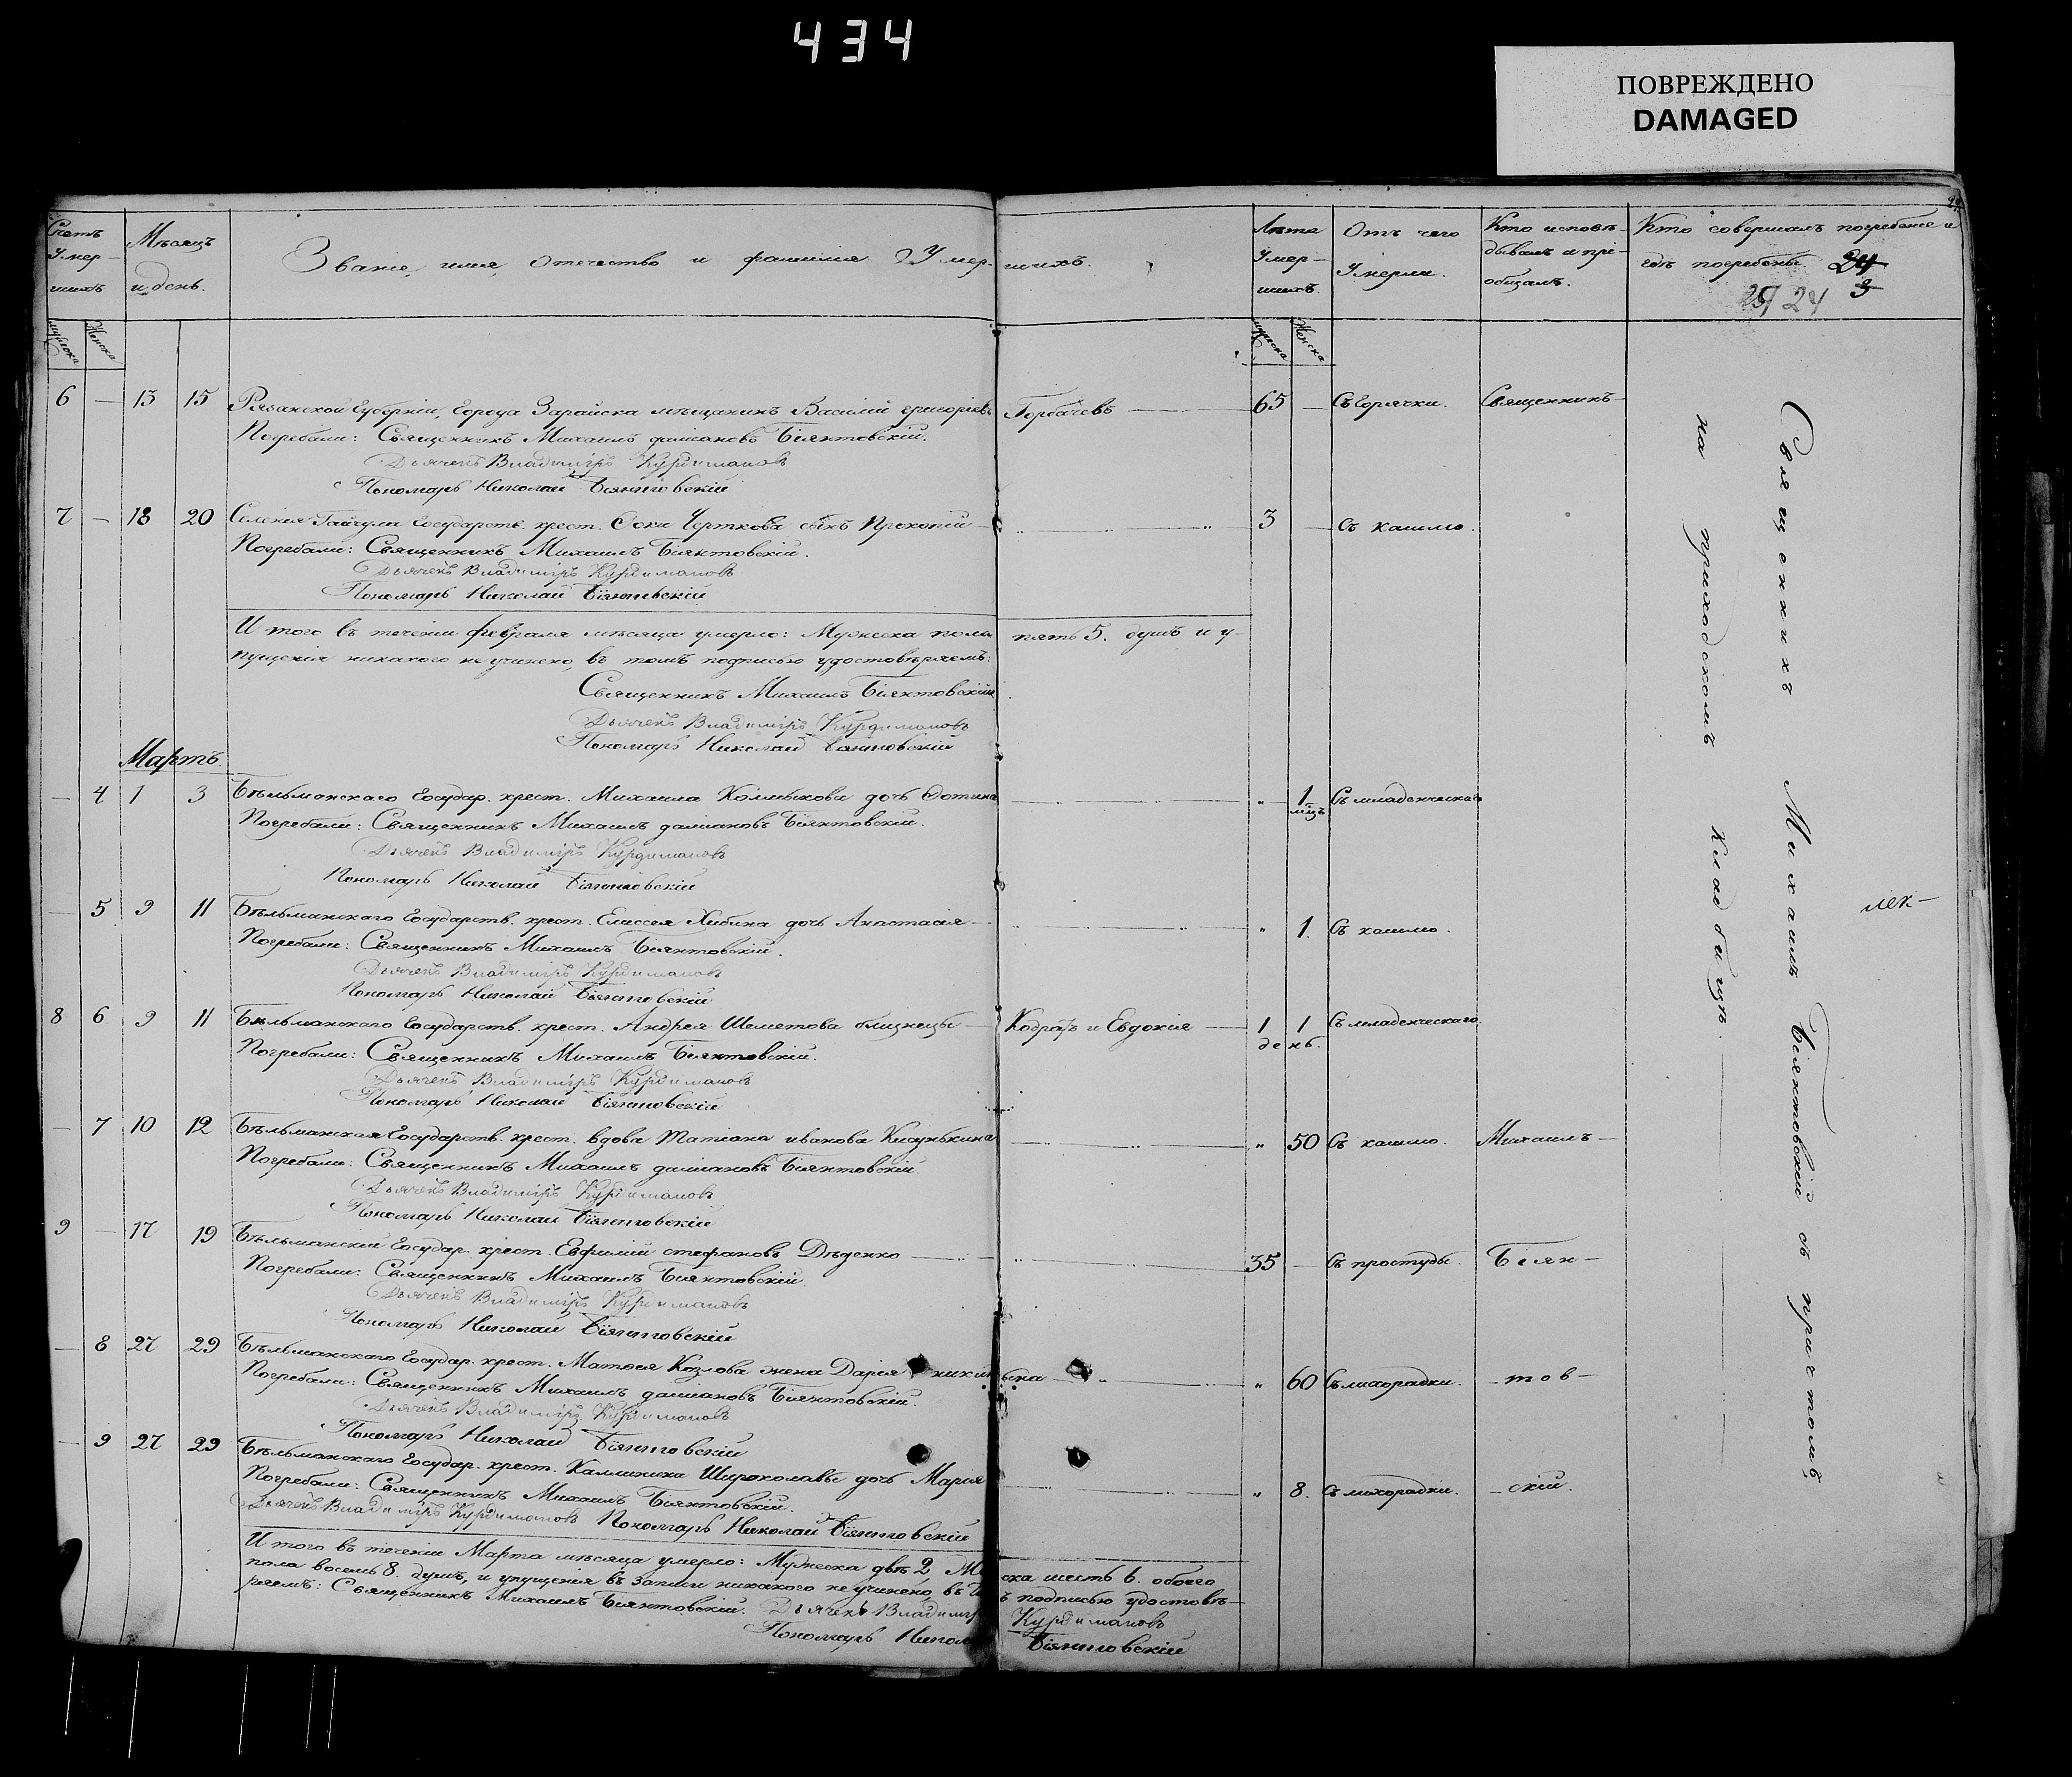 434
ПОВРЕЖДЕНО
DAMAGED
Счетъ Умер-шихъ
Мѣсяцъ и день.
Званіе, имя, отечество и фамилія Умер-шихъ.
Лѣта Умер-шихъ.
Отъ чего Умерли.
Кто исповѣ-дывалъ и прі-общалъ.
Кто совершалъ погребеніе и гдѣ погребены
24 3
25 24
мужеска Женска
мужеска Женска
6 — 13 15 Рязанской Губерніи, Города Зарайска мѣщанинъ Василій григоріевъ Горбачевъ — 65 — Съ Горячки. Священникъ—
Погребали: Священникъ Михаилъ даміановъ Біянтовскій.
Дьячекъ Владиміръ Курдимановъ
Пономарь Николай Біянтовскій
7 — 18 20 Селенія Гайчула Государств. крест. Черткова сынъ Прокопій — 3 — Съ кашлю.
Погребали: Священникъ Михаилъ Біянтовскій.
Дьячекъ Владиміръ Курдимановъ
Пономарь Николай Біянтовскій
И того въ теченіи февраля мѣсяца умерло: Мужеска пола пять 5. душъ и у-
пущенія никакого не учинено, въ томъ подписью удостовѣряемъ:
Священникъ Михаилъ Біянтовскій
Дьячекъ Владиміръ Курдимановъ
Пономарь Николай Біянтовскій
Мартъ.
— 4 1 3 Бѣльманскаго Государ. крест. Михаила Колмыкова дочь Фотина „ 1 мѣцъ Съ младенческаго
Погребали: Священникъ Михаилъ даміановъ Біянтовскій.
Дьячекъ Владиміръ Курдимановъ
Пономарь Николай Біянтовскій
— 5 9 11 Бѣльманскаго Государств. крест. Елиссея Хибина дочь Анастасія — „ 1. Съ кашлю.
Погребали: Священникъ Михаилъ Біянтовскій.
Дьячекъ Владиміръ Курдимановъ
Пономарь Николай Біянтовскій
8 6 9 11 Бѣльманскаго Государств. крест. Андрея Шеметова близнецы — Кодратъ и Евдокія — 1 1 день. Съ младенческаго.
Погребали: Священникъ Михаилъ Біянтовскій.
Дьячекъ Владиміръ Курдимановъ
Пономарь Николай Біянтовскій
— 7 10 12 Бѣльманская Государств. крест. вдова Татіана иванова „ 50 Съ кашлю. Михаилъ—
Погребали: Священникъ Михаилъ даміановъ Біянтовскій
Дьячекъ Владиміръ Курдимановъ
Пономарь Николай Біянтовскій
9 — 17 19 Бѣльманскій Государ. крест. Евфимій стефановъ Дѣденко — 35 — Съ простуды. Біян—
Погребали: Священникъ Михаилъ Біянтовскій
Дьячекъ Владиміръ Курдимановъ
Пономарь Николай Біянтовскій
— 8 27 29 Бѣльманскаго Государ. крест. Матвея Козлова жена Дарія „ 60 Съ лихорадки. —тов—
Погребали: Священникъ Михаилъ даміановъ Біянтовскій.
Дьячекъ Владиміръ Курдимановъ
Пономарь Николай Біянтовскій
— 9 27 29 Бѣльманскаго Государ. крест. Каллиника дочь Марія „ 8. Съ лихорадки. —скій.
Погребали: Священникъ Михаилъ Біянтовскій.
Дьячекъ Владиміръ Курдимановъ Пономарь Николай Біянтовскій
И того въ теченіи Марта мѣсяца умерло: Мужеска двѣ 2, ска шесть 6. обоего
пола восемь 8. душъ, и упущенія въ записи никакого не учинено, въ подписью удостовѣ—
ряемъ: Священникъ Михаилъ Біянтовскій. Дьячекъ Владиміръ Курдимановъ
Пономарь Никол Біянтовскій
Священникъ Михаилъ Біянтовскій съ причтомъ
на приходскомъ кладбищѣ.